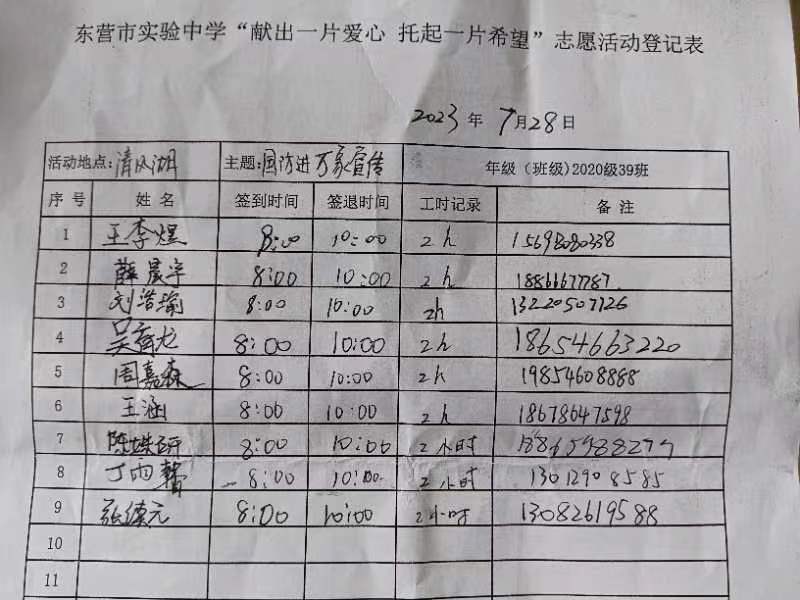 东营市实验中学“献出一片爱心 托起一片希望”志愿活动登记表
2023 年 7月28日
活动地点:清风湖 主题:国防进万家宣传 年级（班级)2020级39班
序 号 姓 名 签到时间 签退时间 工时记录 备 注
1 王李煜 8:00 10:00 2h
2 薛晨宇 8:00 10:00 2h 18866677787
3 刘浩瑜 8:00 10:00 2h 13220507126
4 8:00 10:00 2h 18654663220
5 周嘉森 8:00 10:00 2h 19854608888
6 王涵 8:00 10:00 2h 18678647598
7 8:00 10:00 2小时
8 8:00 10:00 2小时 13012908585
9 张德元 8:00 10:00 2小时 13082619588
10
11